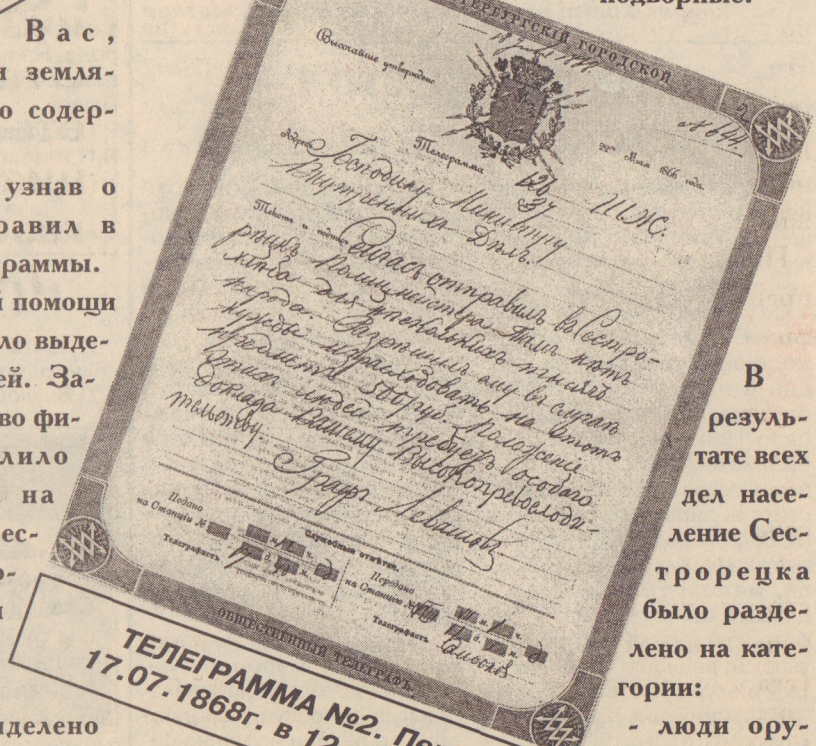 подворные.
Вас,
и земля-
о содер-
узнав о
равил в
раммы.
й помощи
ло выде-
ей. За-
во фи-
лило
на
ес-
о-
и
иделено
ТЕРБУРГСКІЙ ГОРОДСКОЙ
Высочайше утверждено
2
№ 644
Адресъ
Телеграмма
Мая 186 года.
Господину Министру
Внутреннихъ Дѣлъ.
126
37
Текстъ и подпись
Сейчасъ отправилъ въ Сестро-
рѣцкъ Полицмейстера. Тамъ нѣтъ
хлѣба для нѣсколькихъ тысячъ
народа. Разрѣшилъ ему въ случаѣ
нужды израсходовать на этотъ
предметъ 500 руб. Положеніе
этихъ людей требуетъ особаго
доклада Вашему Высокопревосходи-
тельству.
Графъ Левашовъ
Служебныя отмѣтки.
Подано
на Станціи №
Телеграфистъ
Передано
на Станцію №
Телеграфистъ
ОБЩЕСТВЕННЫЙ ТЕЛЕГРАФЪ.
ТЕЛЕГРАММА №2.
17.07.1868г. в 12
В
резуль-
тате всех
дел насе-
ление Сес-
трорецка
было разде-
лено на кате-
гории:
- люди ору-